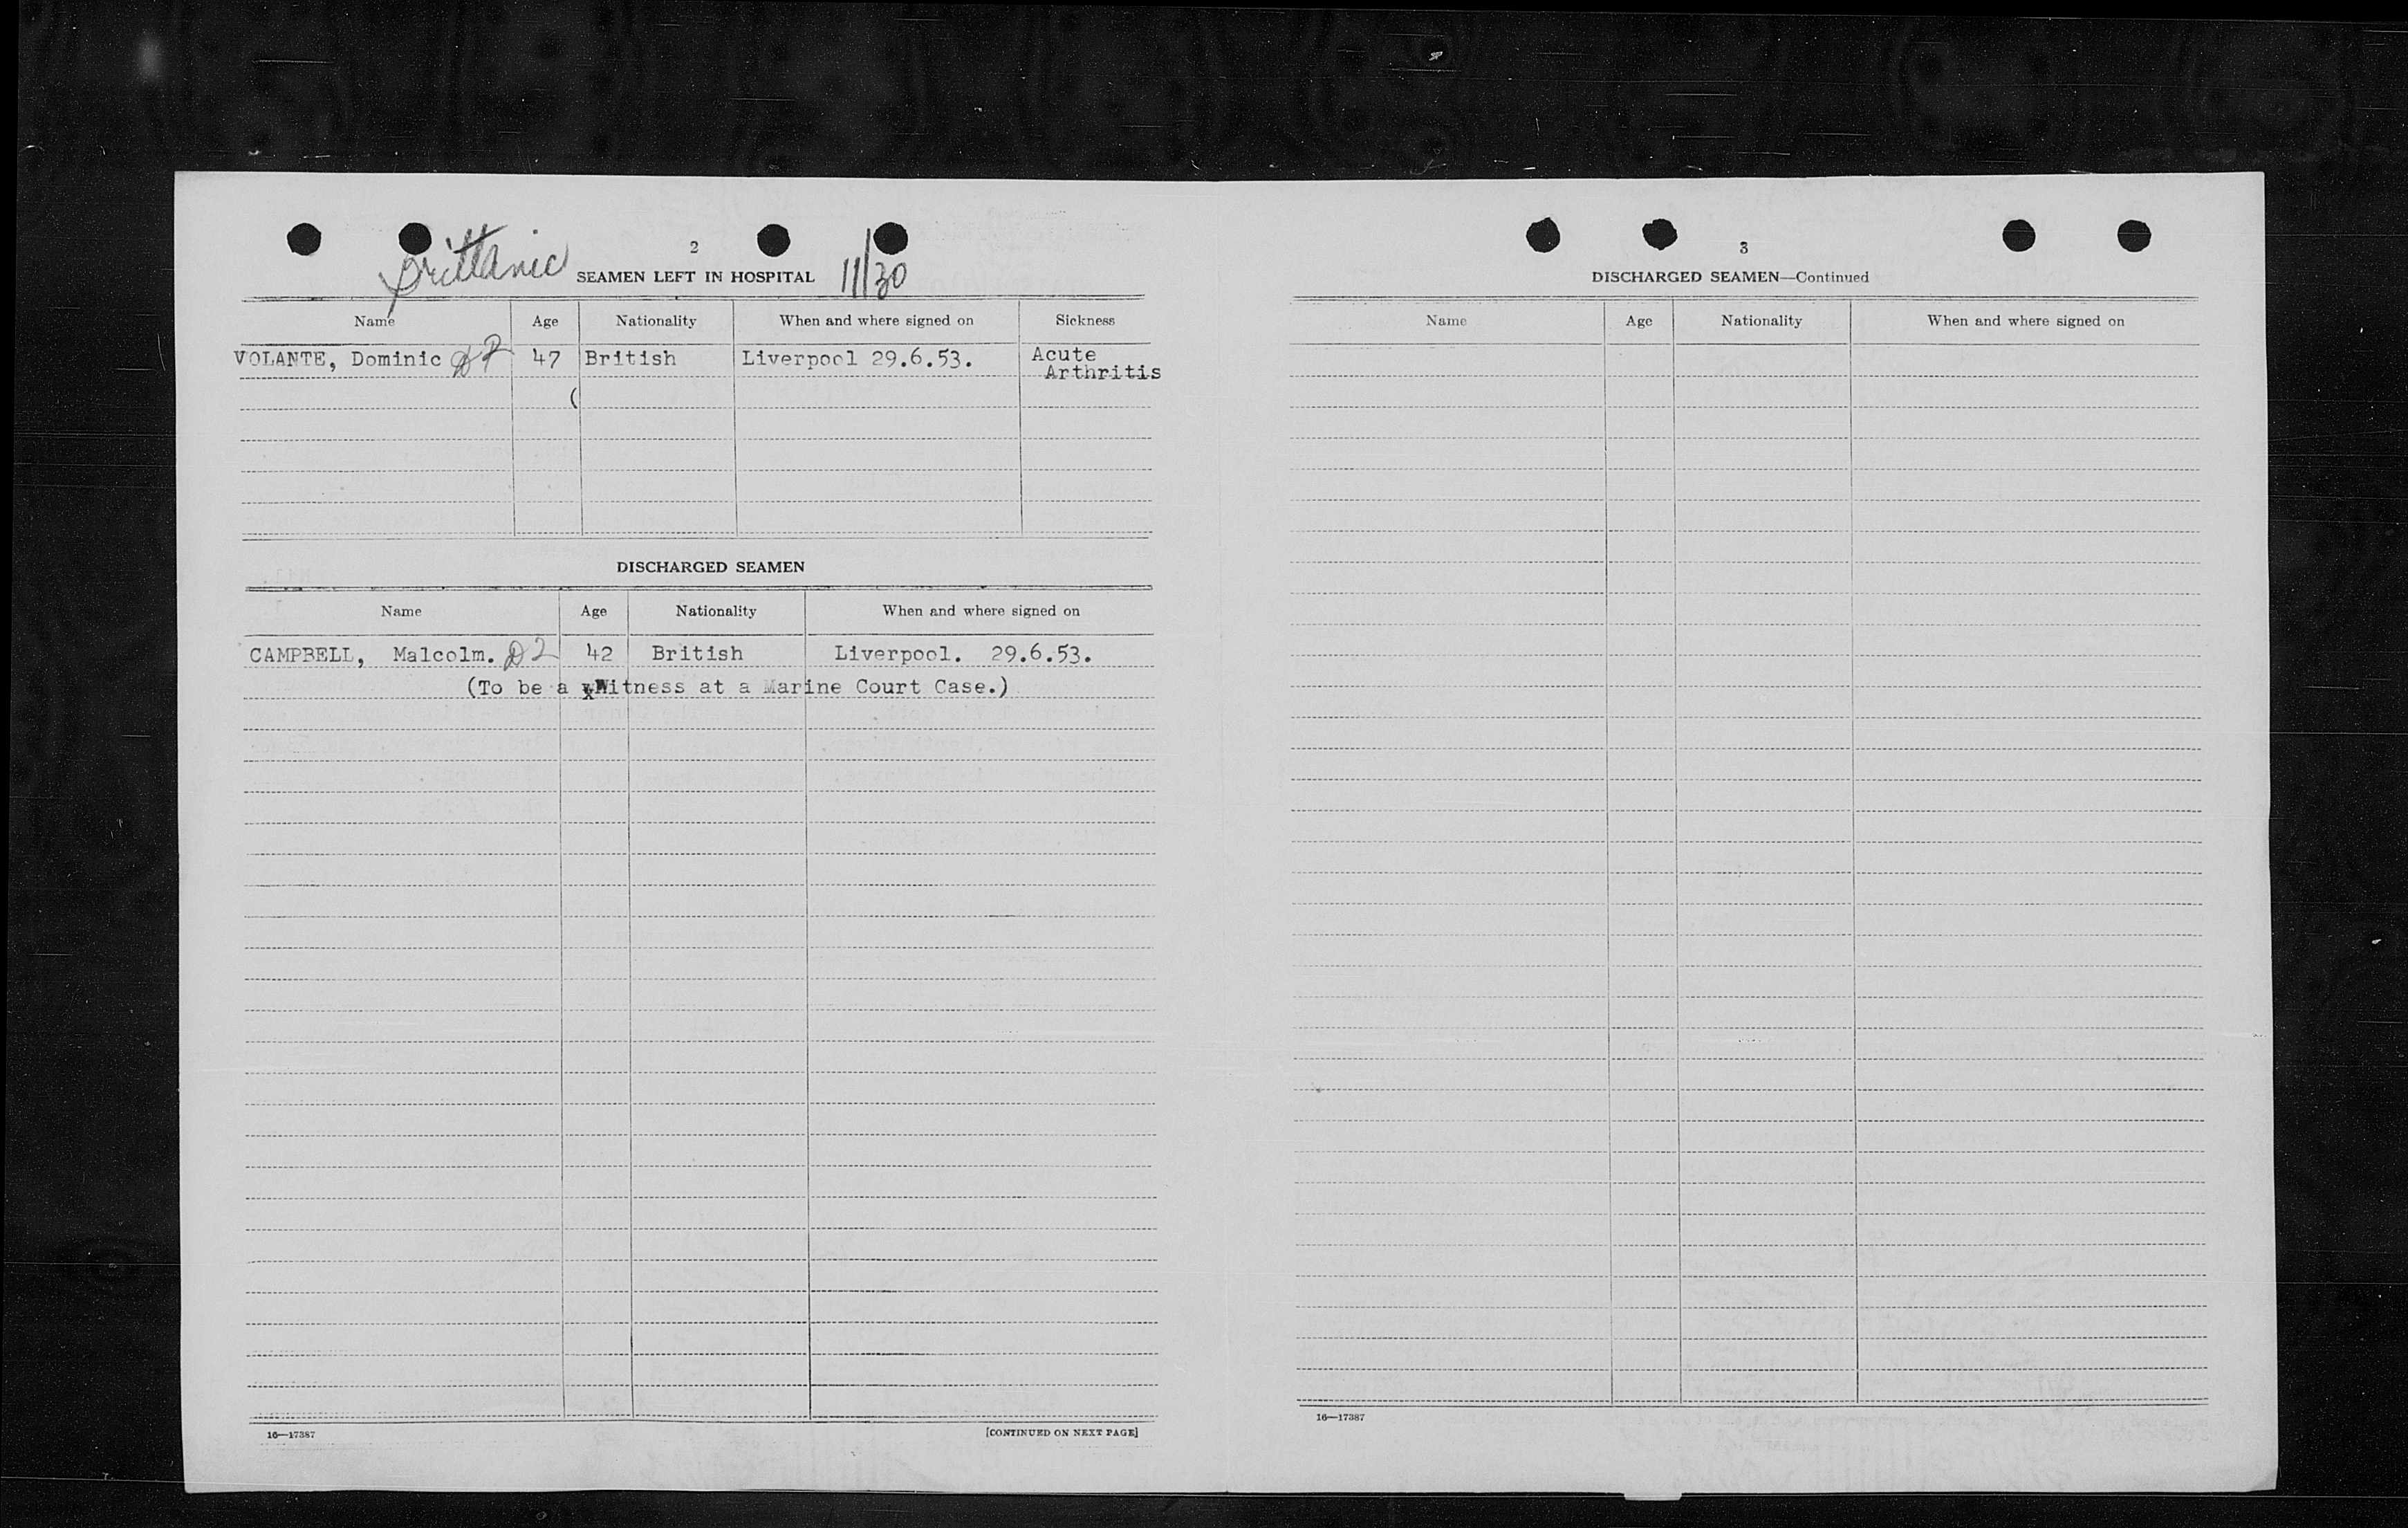 2
Brittanic
SEAMEN LEFT IN HOSPITAL
11/30
Name Age Nationality When and where signed on Sickness
VOLANTE, Dominic 47 British Liverpool 29.6.53. Acute
Arthritis
(
DISCHARGED SEAMEN
Name Age Nationality When and where signed on
CAMPBELL, Malcolm. D2 42 British Liverpool. 29.6.53.
(To be a Witness at a Marine Court Case.)
16—17387 [CONTINUED ON NEXT PAGE]
3
DISCHARGED SEAMEN—Continued
Name Age Nationality When and where signed on
16—17387